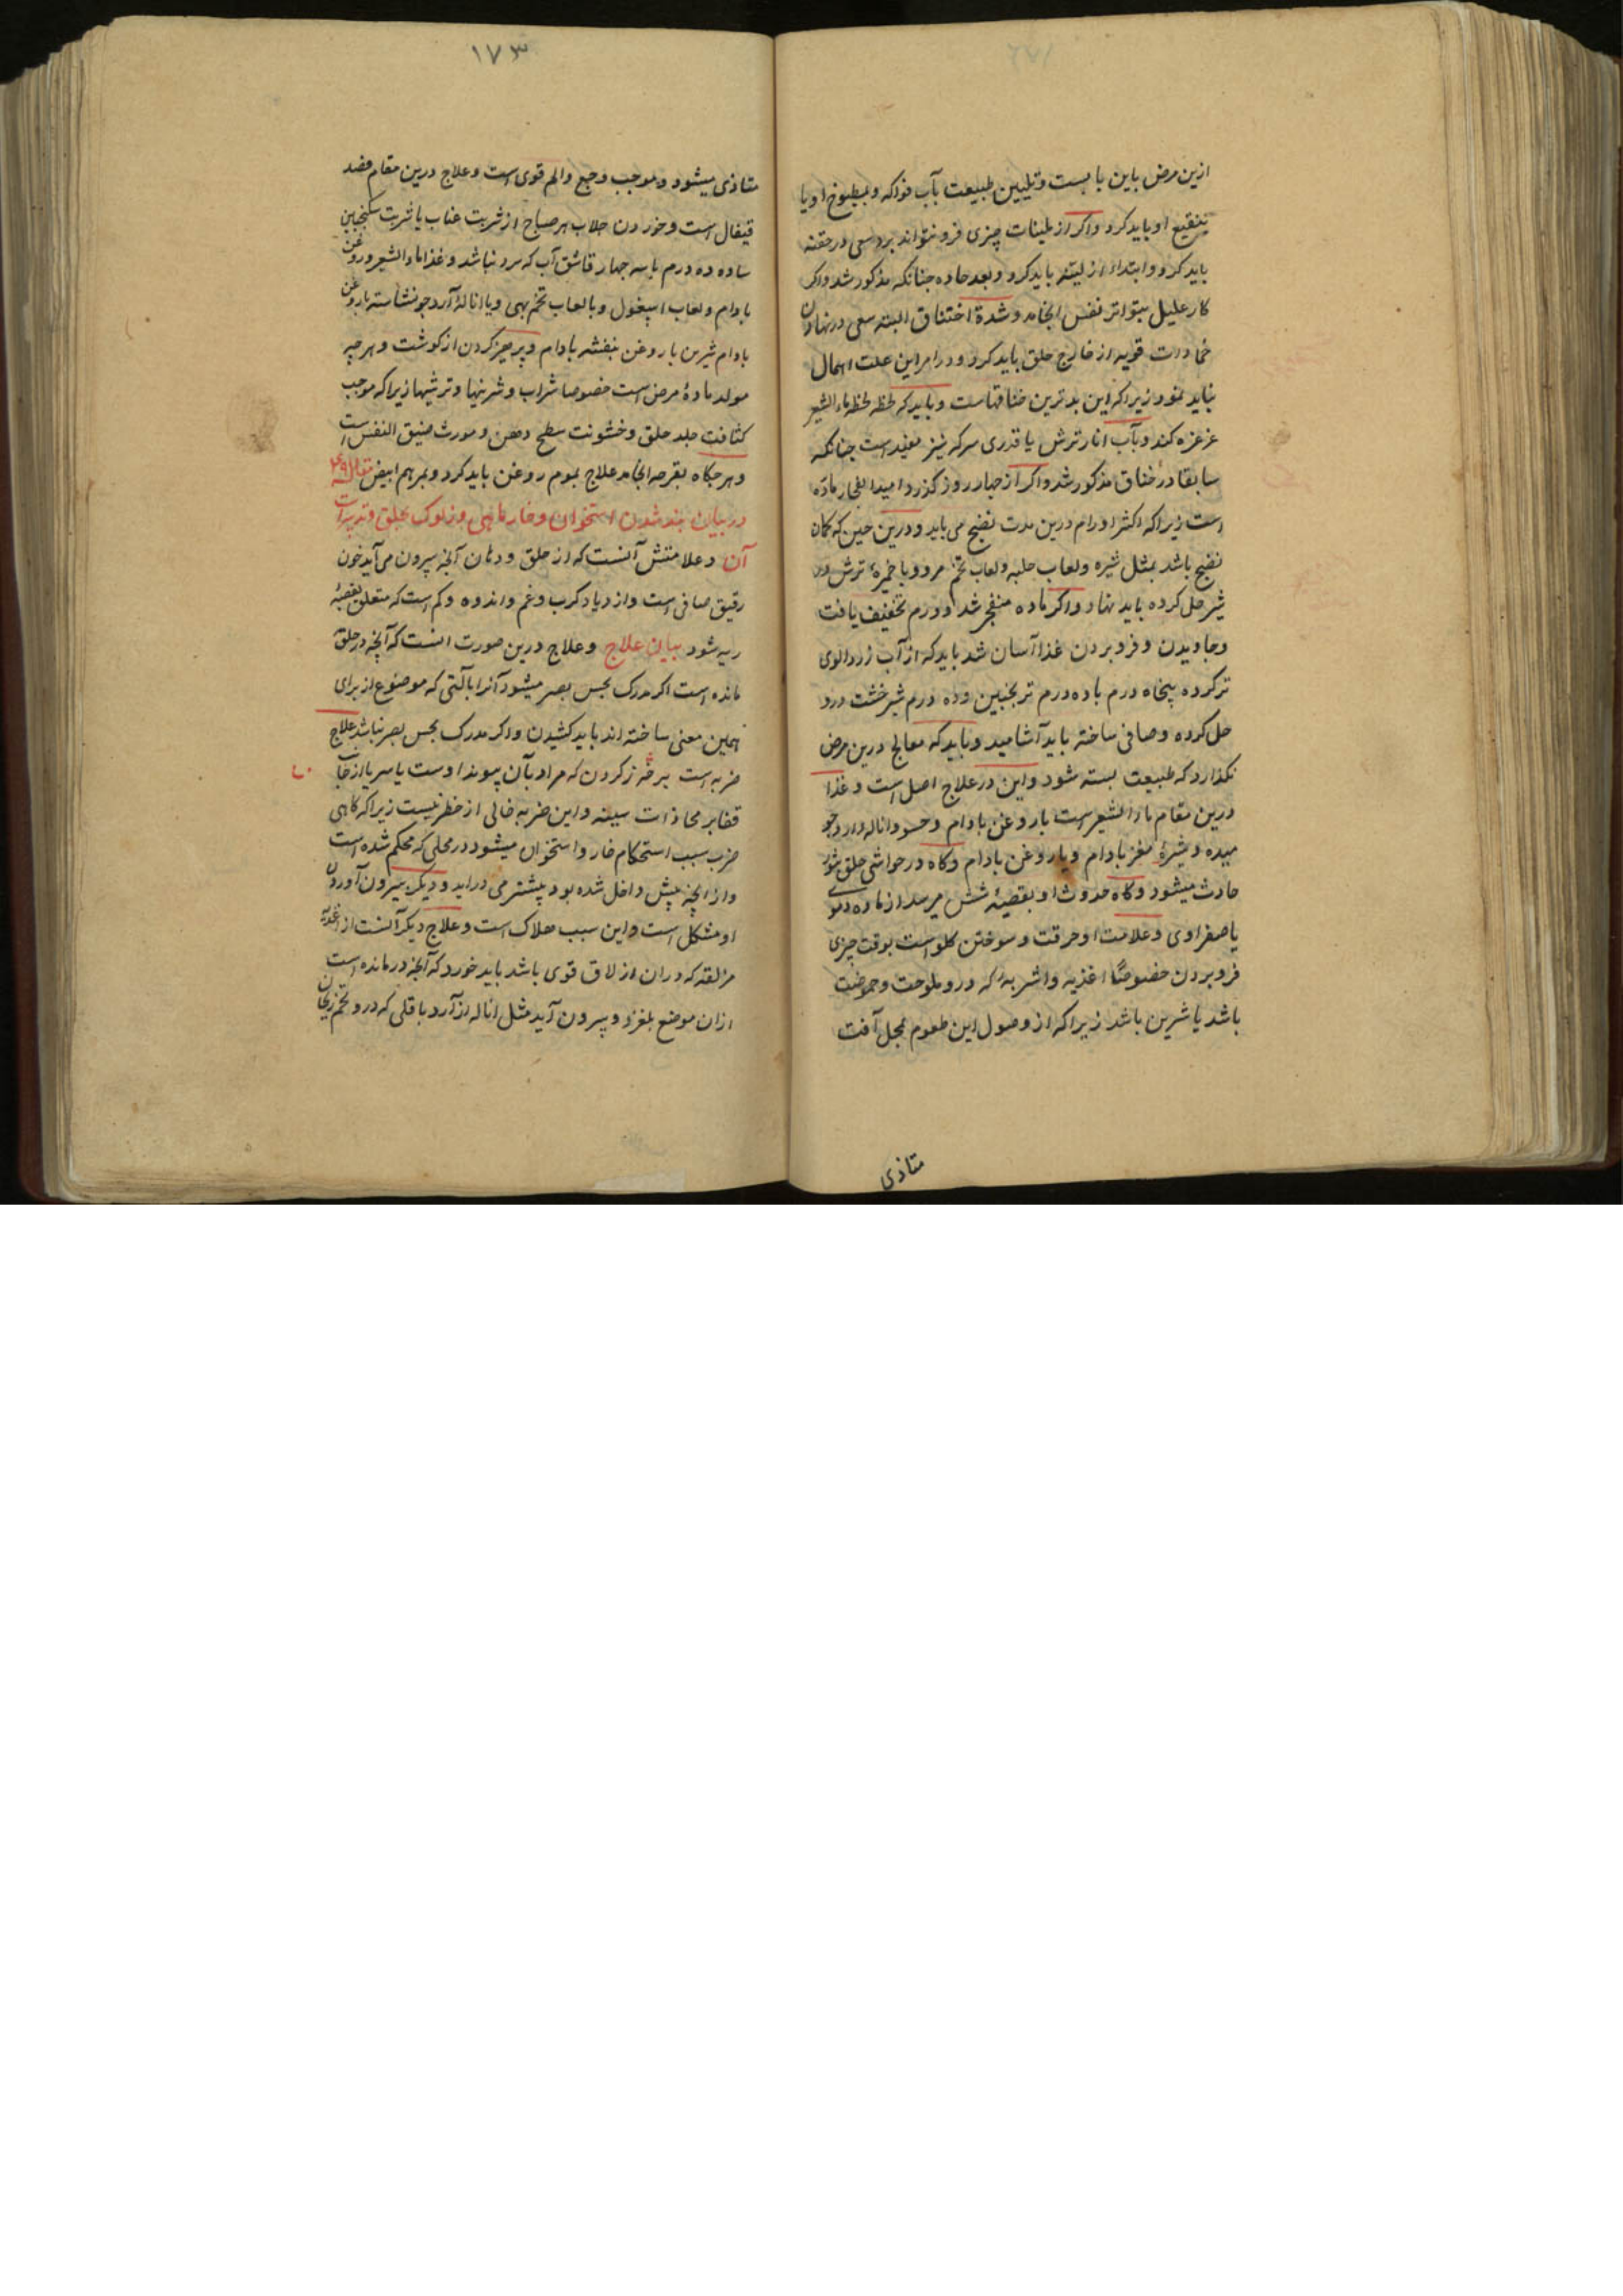 ازین مرض باین بابست و تلیین طبیعت بآب فواکه و بمطبوخ او یا
بنقیع او باید کرد و اکر از ملینات چیزی فرو نتواند برد سعی در حقنه
باید کرد و ابتدا از لینه باید کرد و بعد حاده چنانکه مذکور شد و اکر
کار علیل بتواتر نفس انجامد و شدة اختناق البته سعی در نهادن
ضمادات قویه از خارج حلق باید کرد و در امر این علت اهمال
نباید نمود زیرا که این بدترین خناقهاست و باید که لحظه لحظه بماء الشعیر
غرغره کند و بآب انار ترش یا قدری سرکه نیز مفید است چنانکه
سابقا در خناق مذکور شد و اکر از چهار روز کذرد امید انفجار ماده
است زیرا که اکثر اورام درین مدت نضج می یابد و درین حین که کمان
نضج باشد بمثل شیره و لعاب حلبه و لعاب تخم مرو و با خمیره ترش در
شیر حل کرده باید نهاد و اکر ماده منفجر شد و ورم تخفیف یافت
و جاویدن و فرو بردن غذا آسان شد باید که از آب زردالوی
تر کرده پنجاه درم با ده درم ترنجبین و ده درم شیرخشت درو
حل کرده و صافی ساخته باید آشامید و باید که معالج درین مرض
نکذارد که طبیعت بسته شود و این در علاج اصل است و غذا
درین مقام ماء الشعیر است با روغن بادام و حسو و اناله و آرد جو
میده و شیرۀ مغز بادام و یا روغن بادام و کاه در حواشی حلق بثور
حادث میشود و کاه حدوث او بقصبۀ شش میرسد از ماده دموی
یا صفراوی و علامت او حرقت و سوختن کلو است بوقت چیزی
فرو بردن خصوصاً اغذیه و اشربه که درو ملوحت و حموضت
باشد یا شیرین باشد زیرا که از وصول این طعوم بمحل آفت
متاذی
١٧٣
متاذی میشود و موجب وجع و الم قوی است و علاج درین مقام فصد
قیفال است و خوردن جلاب هر صباح از شربت عناب یا شربت سکنجبین
ساده ده درم با سه چهار قاشق آب که سرد نباشد و غذا ماء الشعیر و روغن
بادام و لعاب اسپغول و با لعاب تخم بهی و یا اناله آرد جو نشاسته با روغن
بادام شیرین با روغن بنفشه بادام و پرهیز کردن از کوشت و هر چیز
مولد مادۀ مرض است خصوصا شراب و شیرینها و ترشیها زیرا که موجب
کثافت جلد حلق و خشونت سطح دهن و مورث ضیق النفس است
و هر جکاه بقرحه انجامد علاج بموم روغن باید کرد و بمرهم ابیض مقاله ٩
در بیان بند شدن استخوان و خار ماهی و زلوک بحلق و تدبیرات
آن و علامتش آنست که از حلق و دهان آنچه بیرون می آید خون
رقیق صافی است و ازدیاد کرب و غم و اندوه و کم است که متعلق بقصبۀ
ریه شود بیان علاج و علاج درین صورت انست که آنچه در حلق
مانده است اکر مدرک بحس بصر میشود آنرا بآلتی که موضوع از برای
همین معنی ساخته اند باید کشیدن و اکر مدرک بحس بصر نباشد علاج
ضربه است بر فرز کردن که مراد بآن پیوند اوست یا سر یا از جانب
قفا بر محاذات سینه و این ضربه خالی از خطر نیست زیرا که کاهی
ضرب سبب استحکام خار و استخوان میشود در محلی که محکم شده است
و از انچه پیش داخل شده بود پیشتر می در آید و دیکر بیرون آوردن
او مشکل است و این سبب هلاک است و علاج دیکر آنست از اغذیه
مزلقه که دران ازلاق قوی باشد باید خورد که آنچه درمانده است
ازان موضع بلغزد و بیرون آید مثل اناله از آرد باقلی که درو تخم ریحان